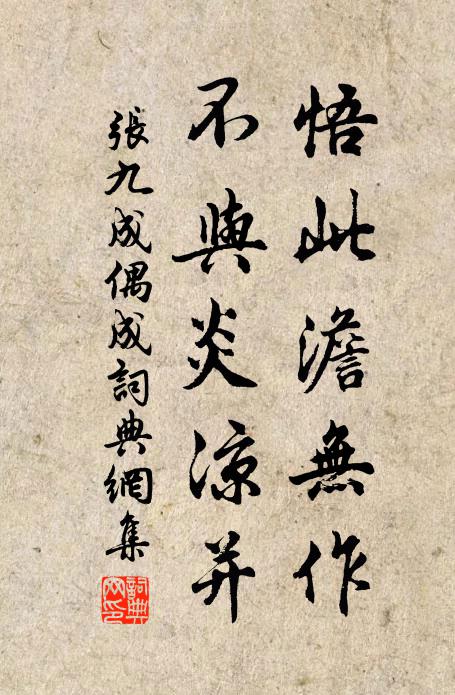 悟此澹無作
不與炎涼并
張九成偶成詞典網集
詞典網印